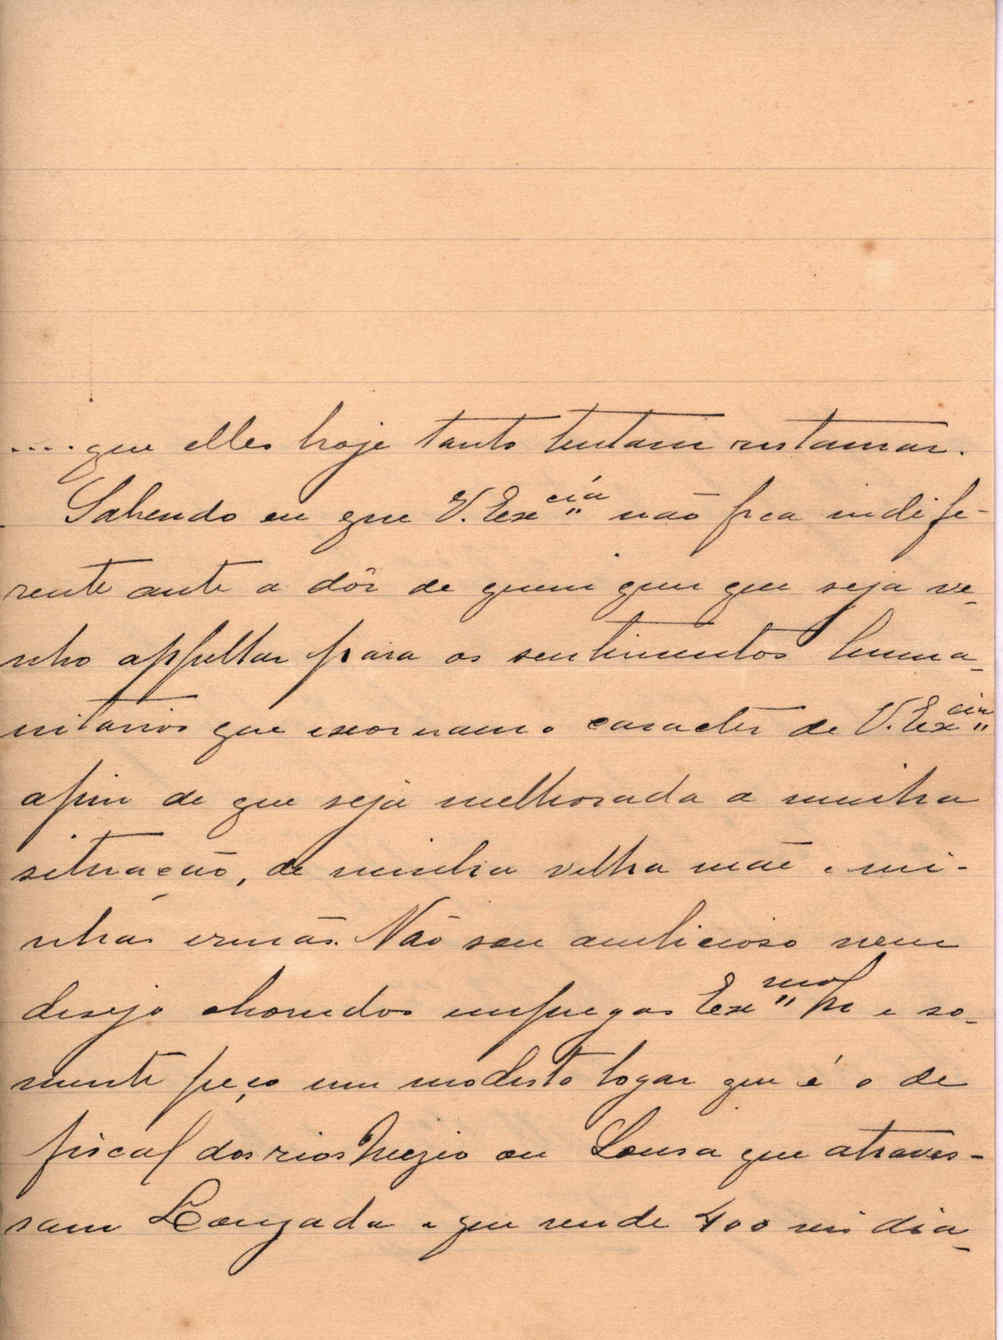 .... que elles hoje tanto tentam restaurar.
Sabendo eu que V. Ex.cia não fica indife-
rente ante a dôr de quem quer que seja ve-
nho appellar para os sentimentos huma-
nitarios que exornam o caracter de V. Ex.cia
afim de que seja melhorada a minha
situação, de minha velha mãe e mi-
nhas irmãs. Não sou ambicioso nem
desejo chorudos empregos Ex.mo Snr e so-
mente peço um modesto logar que é o de
fiscal dos rios Mezio ou Sousa que atraves-
sam Louzada e que rende 400 reis dia-